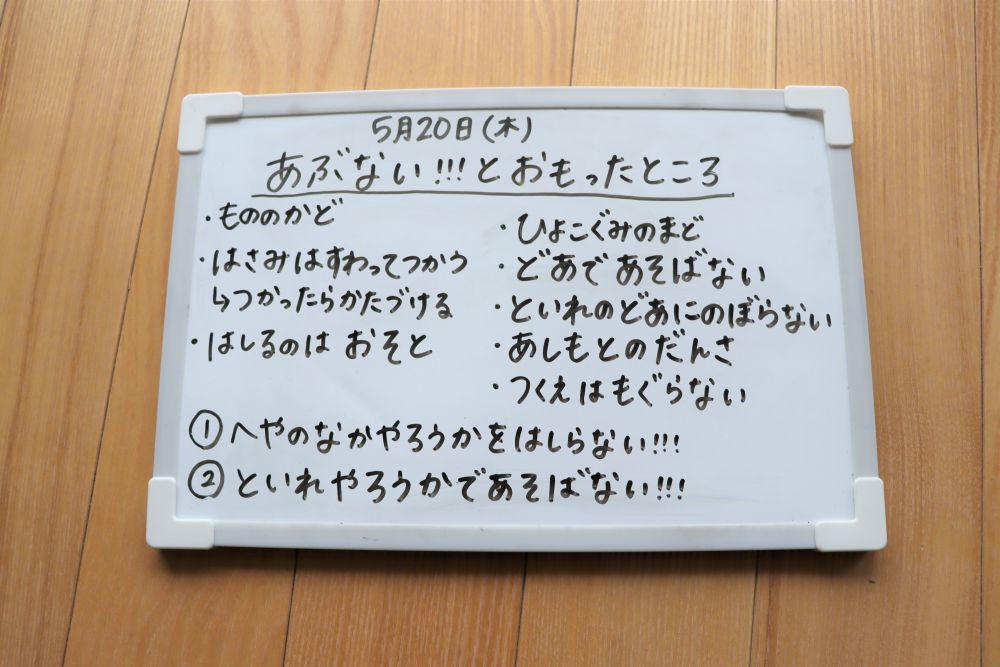 5月20日(木)
あぶない!!!とおもったところ
・もののかど
・はさみはすわってつかう
↳つかったらかたづける
・はしるのは おそと
・ひよこぐみのまど
・どあであそばない
・といれのどあにのぼらない
・あしもとのだんさ
・つくえはもぐらない
①へやのなかやろうかをはしらない!!!
②といれやろうかであそばない!!!